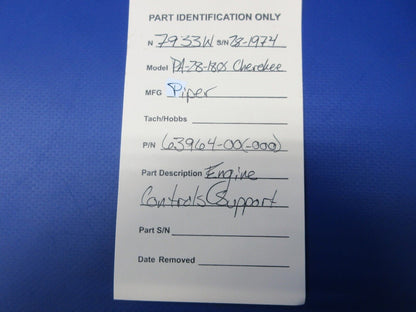 PART IDENTIFICATION ONLY
N 7933W S/N 28-1974
Model PA-28-180S Cherokee
MFG Piper
Tach/Hobbs
P/N 63964-00(-000)
Part Description Engine
Controls Support
Part S/N
Date Removed